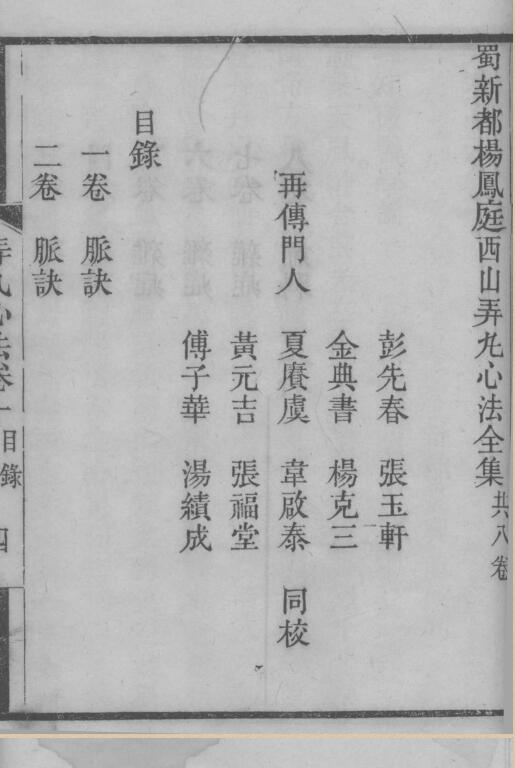 蜀新都楊鳳庭西山弄丸心法全集共八卷
彭先春 張玉軒
金典書 楊克三
再傳門人 夏賡虞 韋啟泰 同校
黃元吉 張福堂
傅子華 湯績成
目錄
一卷 脈訣
二卷 脈訣
弄丸心法卷一 目錄 四